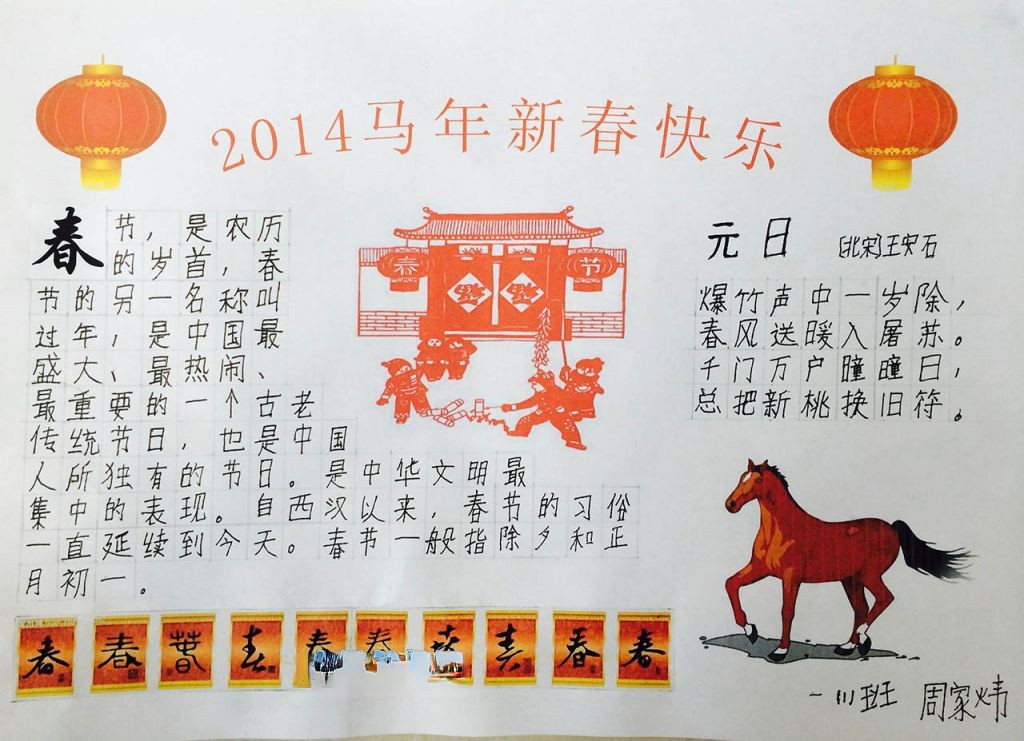 2014马年新春快乐
春节，是农历
的岁首，春
节的另一名称叫
过年，是中国最
盛大、最热闹、
最重要的一个古老
传统节日，也是中国
人所独有的节日。是中华文明最
集中的表现。自西汉以来，春节的习俗
一直延续到今天。春节一般指除夕和正
月初一。
春 节
元日 [北宋]王安石
爆竹声中一岁除，
春风送暖入屠苏。
千门万户瞳瞳日，
总把新桃换旧符。
春 春 春 春 春 春 春 春
一川班 周家炜